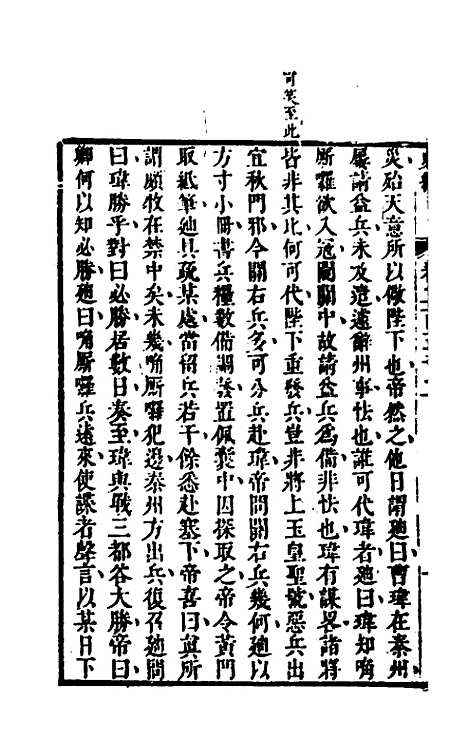 可笑至此
災殆天意所以儆陛下也帝然之他日謂迪曰曹瑋在秦州
屢請益兵未及遣遽辭州事怯也誰可代瑋者迪曰瑋知唃
厮囉欲入寇闚關中故請益兵為備非怯也瑋有謀畧諸將
皆非其比何可代陛下重發兵豈非將上玉皇聖號惡兵出
宜秋門邪今關右兵多可分兵赴瑋帝問關右兵幾何迪以
方寸小冊書兵糧數備調發置佩囊中因探取之帝令黃門
取紙筆迪具疏某處當留兵若干餘悉赴塞下帝喜曰眞所
謂頗牧在禁中矣未幾唃厮囉犯邊秦州方出兵復召迪問
曰瑋勝乎對曰必勝居數日奏至瑋與戰三都谷大勝帝曰
卿何以知必勝迪曰唃厮囉兵遠來使諜者聲言以某日下